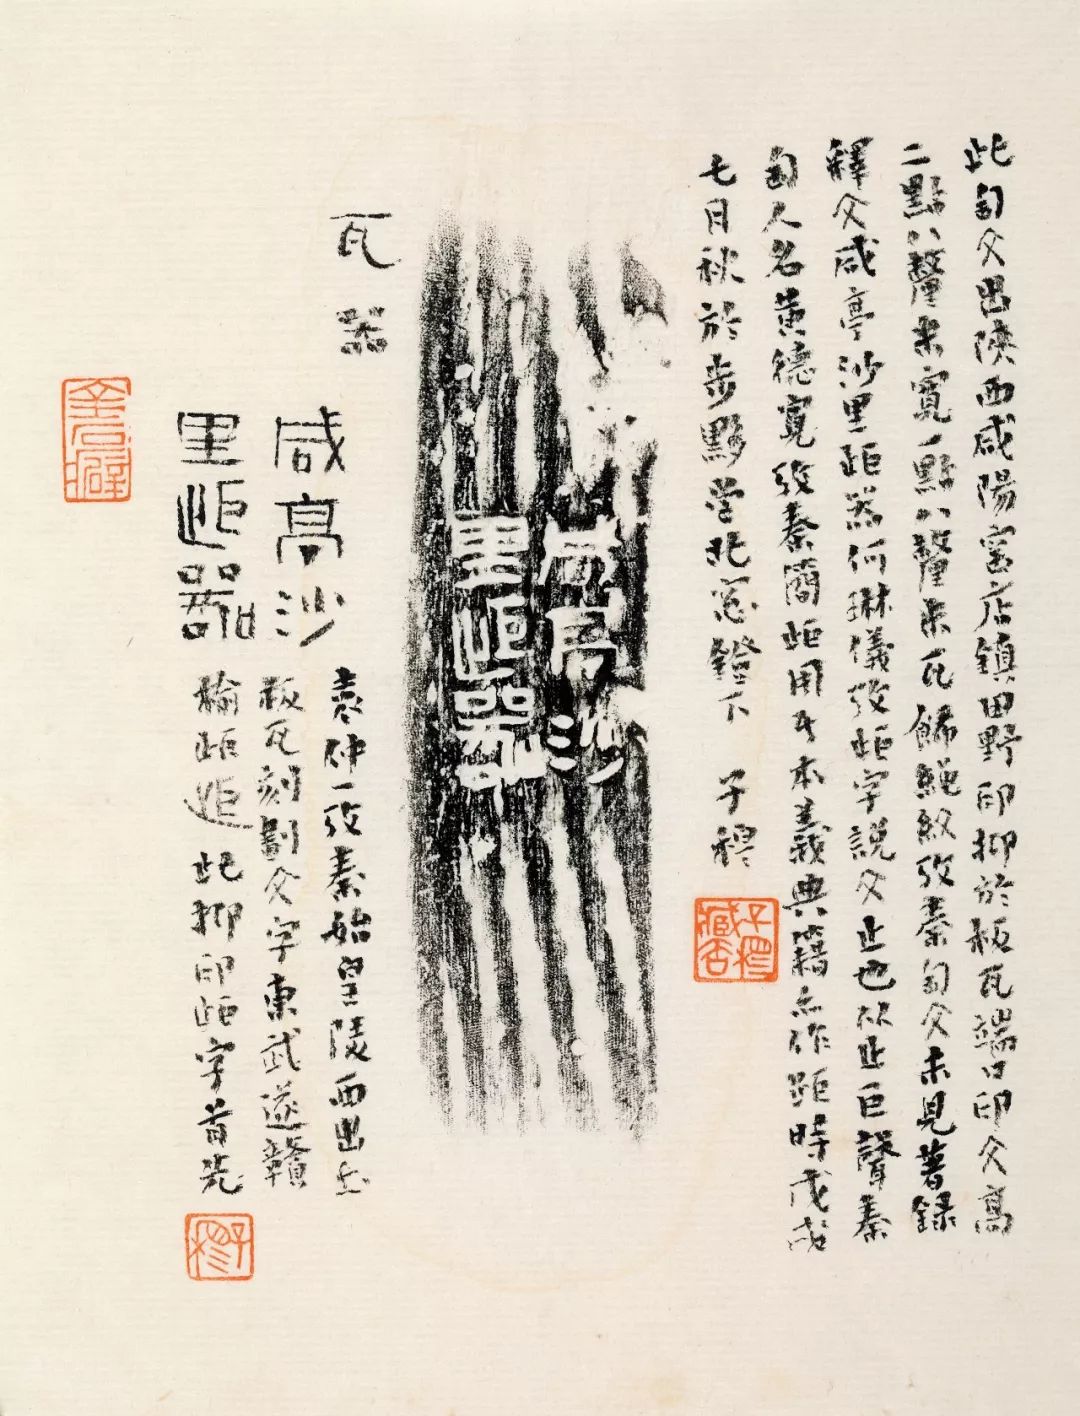 此匋文出陝西咸陽宮店鎮田野印抑於板瓦端口印文高
二點八釐米寬一點八釐米瓦飾繩紋攷秦匋文未見著録
釋文咸亭沙里歫器何琳儀攷歫字說文止也从止巨聲秦
匋人名黃德寬攷秦簡歫用亓本義典籍亦作距時戊戌
七月秋於步黟堂北窓鐙下 子穆
咸亭沙
里歫器
瓦器
咸亭沙
里歫器
袁仲一攷秦始皇陵西出土
板瓦刻劃文字東武遂贛
榆歫歫此抑印歫字首先
子穆
金石癖